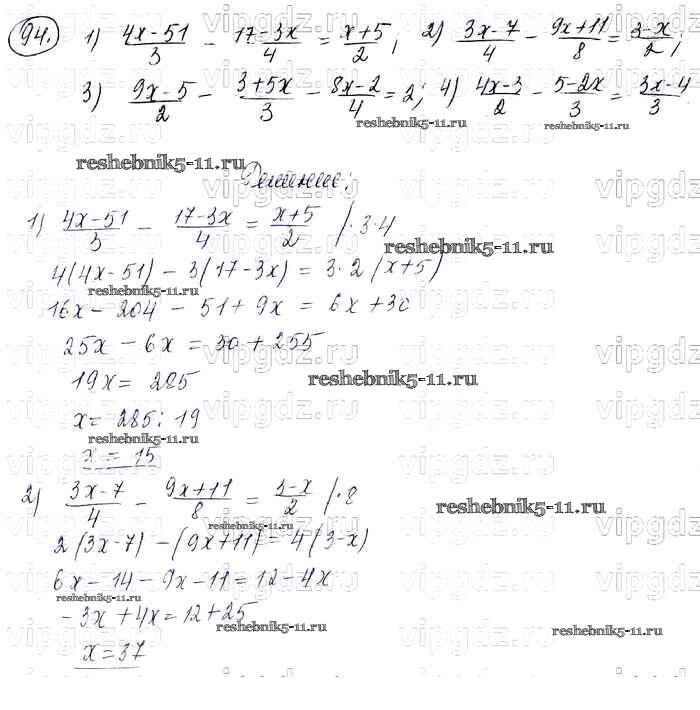 94. 1) (4x-51)/3 - (17-3x)/4 = (x+5)/2; 2) (3x-7)/4 - (9x+11)/8 = (3-x)/2;
3) (9x-5)/2 - (3+5x)/3 - (8x-2)/4 = 2; 4) (4x-3)/2 - (5-2x)/3 = (3x-4)/3
reshebnik5-11.ru
reshebnik5-11.ru
reshebnik5-11.ru
Решение:
1) (4x-51)/3 - (17-3x)/4 = (x+5)/2 /·3·4
reshebnik5-11.ru
4(4x-51) - 3(17-3x) = 3·2(x+5)
reshebnik5-11.ru
16x - 204 - 51 + 9x = 6x + 30
25x - 6x = 30 + 255
19x = 285
reshebnik5-11.ru
x = 285 : 19
reshebnik5-11.ru
x = 15
2) (3x-7)/4 - (9x+11)/8 = (3-x)/2 /·8
reshebnik5-11.ru
reshebnik5-11.ru
2(3x-7) - (9x+11) = 4(3-x)
6x - 14 - 9x - 11 = 12 - 4x
reshebnik5-11.ru
-3x + 4x = 12 + 25
reshebnik5-11.ru
reshebnik5-11.ru
x = 37
vipgdz.ru